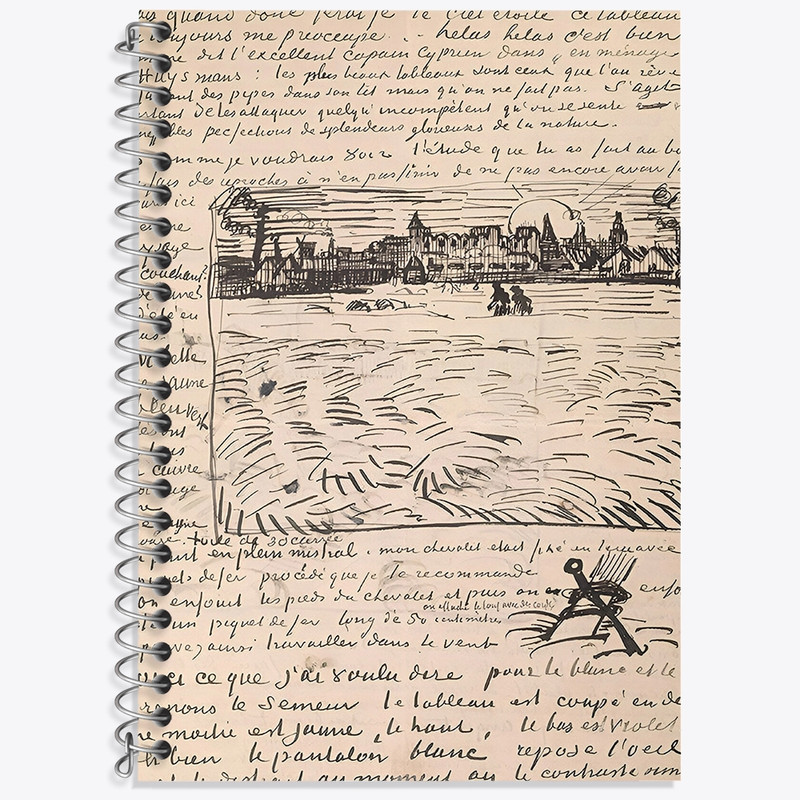 ais quand donc ferai je le ciel étoilé ce tableau
toujours me préoccupe . . helas helas c'est bien
me dit l'excellent copain Cyprien dans „en ménage
Huysmans : les plus beaux tableaux sont ceux que l'on rêve
fumant des pipes dans son lit mais qu'on ne fait pas. S'agit
de les attaquer quelqu'incompétent qu'on se sente
perfections de splendeurs glorieuses de la nature.
omme je voudrais voir l'étude que tu as fait au bo
fais des reproches à n'en pas finir de ne pas encore avoir
ici
couchant.
d'été en
belle
jaune
bleu vert
sont
cuivre
toile de 30 carrée
peint en plein mistral. mon chevalet était fixé en terre avec
de fer procédé que je te recommande
on enfouit les pieds du chevalet et puis on enfo
un piquet de fer long de 50 centimètres
on attache le tout avec des cordes
ainsi travailler dans le vent
ici ce que j'ai voulu dire pour le blanc et le
renons le Semeur le tableau est coupé en de
moitié est jaune, le haut, le bas est violet
h bien le pantalon blanc repose l'oeil
au moment où le contraste sim